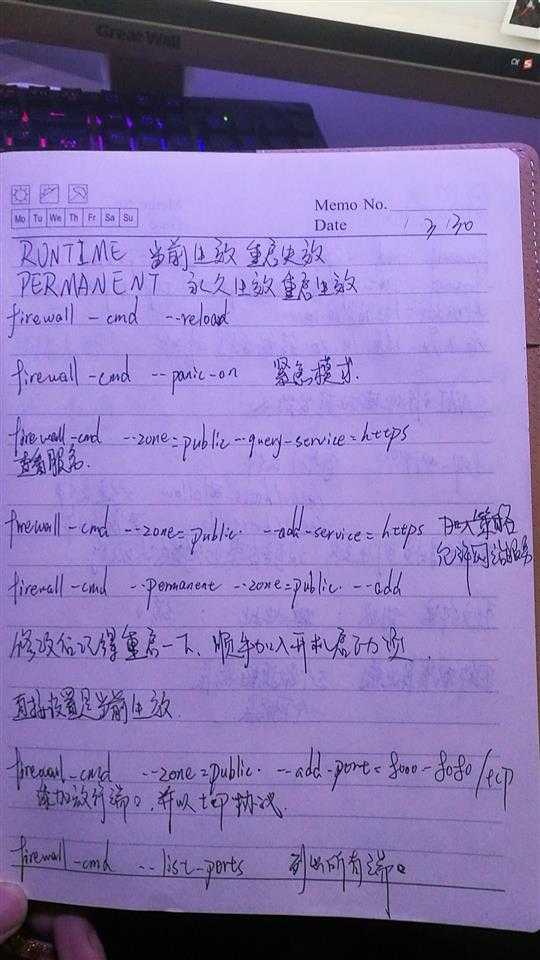 Great Wall
Memo No.
Mo Tu We Th Fr Sa Su
Date 1 3 30
RUNTIME 当前生效 重启失效
PERMANENT 永久生效重启生效
firewall-cmd --reload
firewall-cmd --panic-on 紧急模式.
firewall-cmd --zone=public --query-service=https
查看服务.
firewall-cmd --zone=public --add-service=https 加入策略
允许网站服务
firewall-cmd --permanent --zone=public --add
修改后记得重启一下、顺手加入开机启动项
直接设置是当前生效
firewall-cmd --zone=public --add-port=8000-8080/tcp
添加放行端口，并以tcp协议.
firewall-cmd --list-ports 列出所有端口